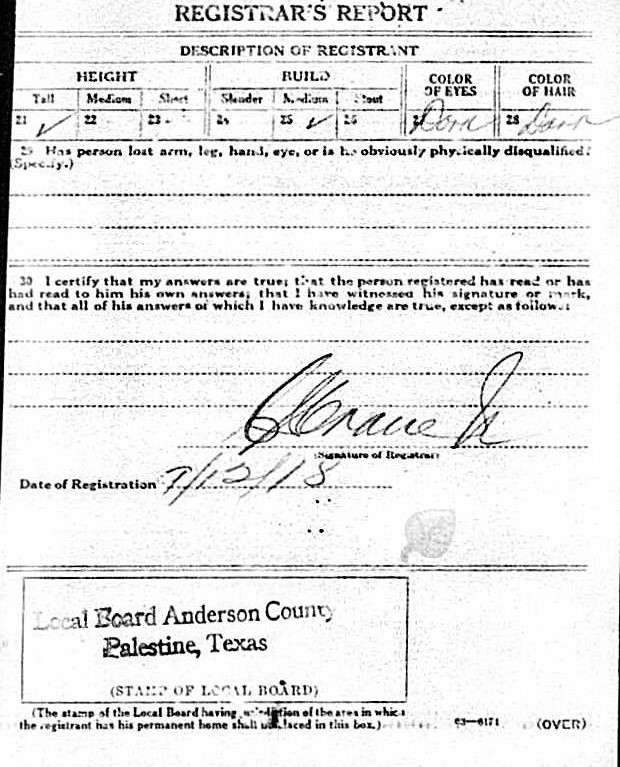 REGISTRAR'S REPORT
DESCRIPTION OF REGISTRANT
HEIGHT BUILD COLOR OF EYES COLOR OF HAIR
Tall Medium Short Slender Medium Stout
21 ✓ 22 23 24 25 ✓ 26 27 Dark 28 Dark
29 Has person lost arm, leg, hand, eye, or is he obviously physically disqualified?
(Specify.)
30 I certify that my answers are true; that the person registered has read or has
had read to him his own answers; that I have witnessed his signature or mark,
and that all of his answers of which I have knowledge are true, except as follows:
(Signature of Registrar)
Date of Registration 9/12/18
Local Board Anderson County
Palestine, Texas
(STAMP OF LOCAL BOARD)
(The stamp of the Local Board having jurisdiction of the area in which
the registrant has his permanent home shall be placed in this box.)
03—6171 (OVER)